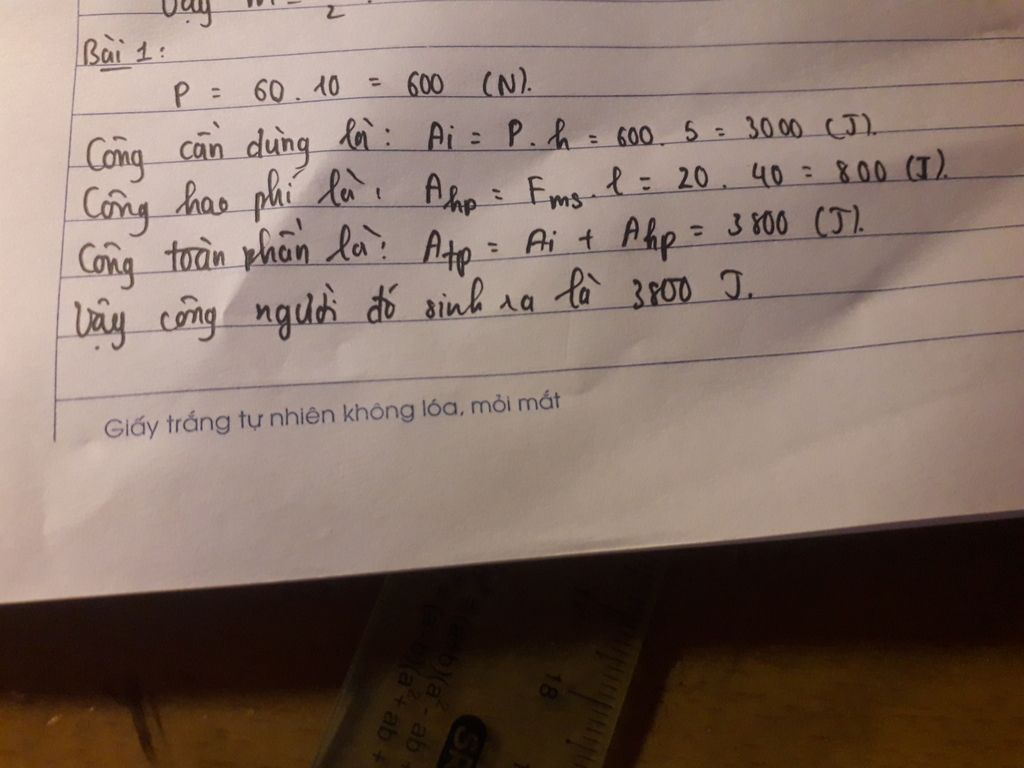 Vậy 2
Bài 1:
P = 60 . 10 = 600 (N).
Công cần dùng là: Ai = P. h = 600. 5 = 3000 (J).
Công hao phí là: Ahp = Fms. l = 20 . 40 = 800 (J).
Công toàn phần là: Atp = Ai + Ahp = 3800 (J).
Vậy công người đó sinh ra là 3800 J.
Giấy trắng tự nhiên không lóa, mỏi mắt
18